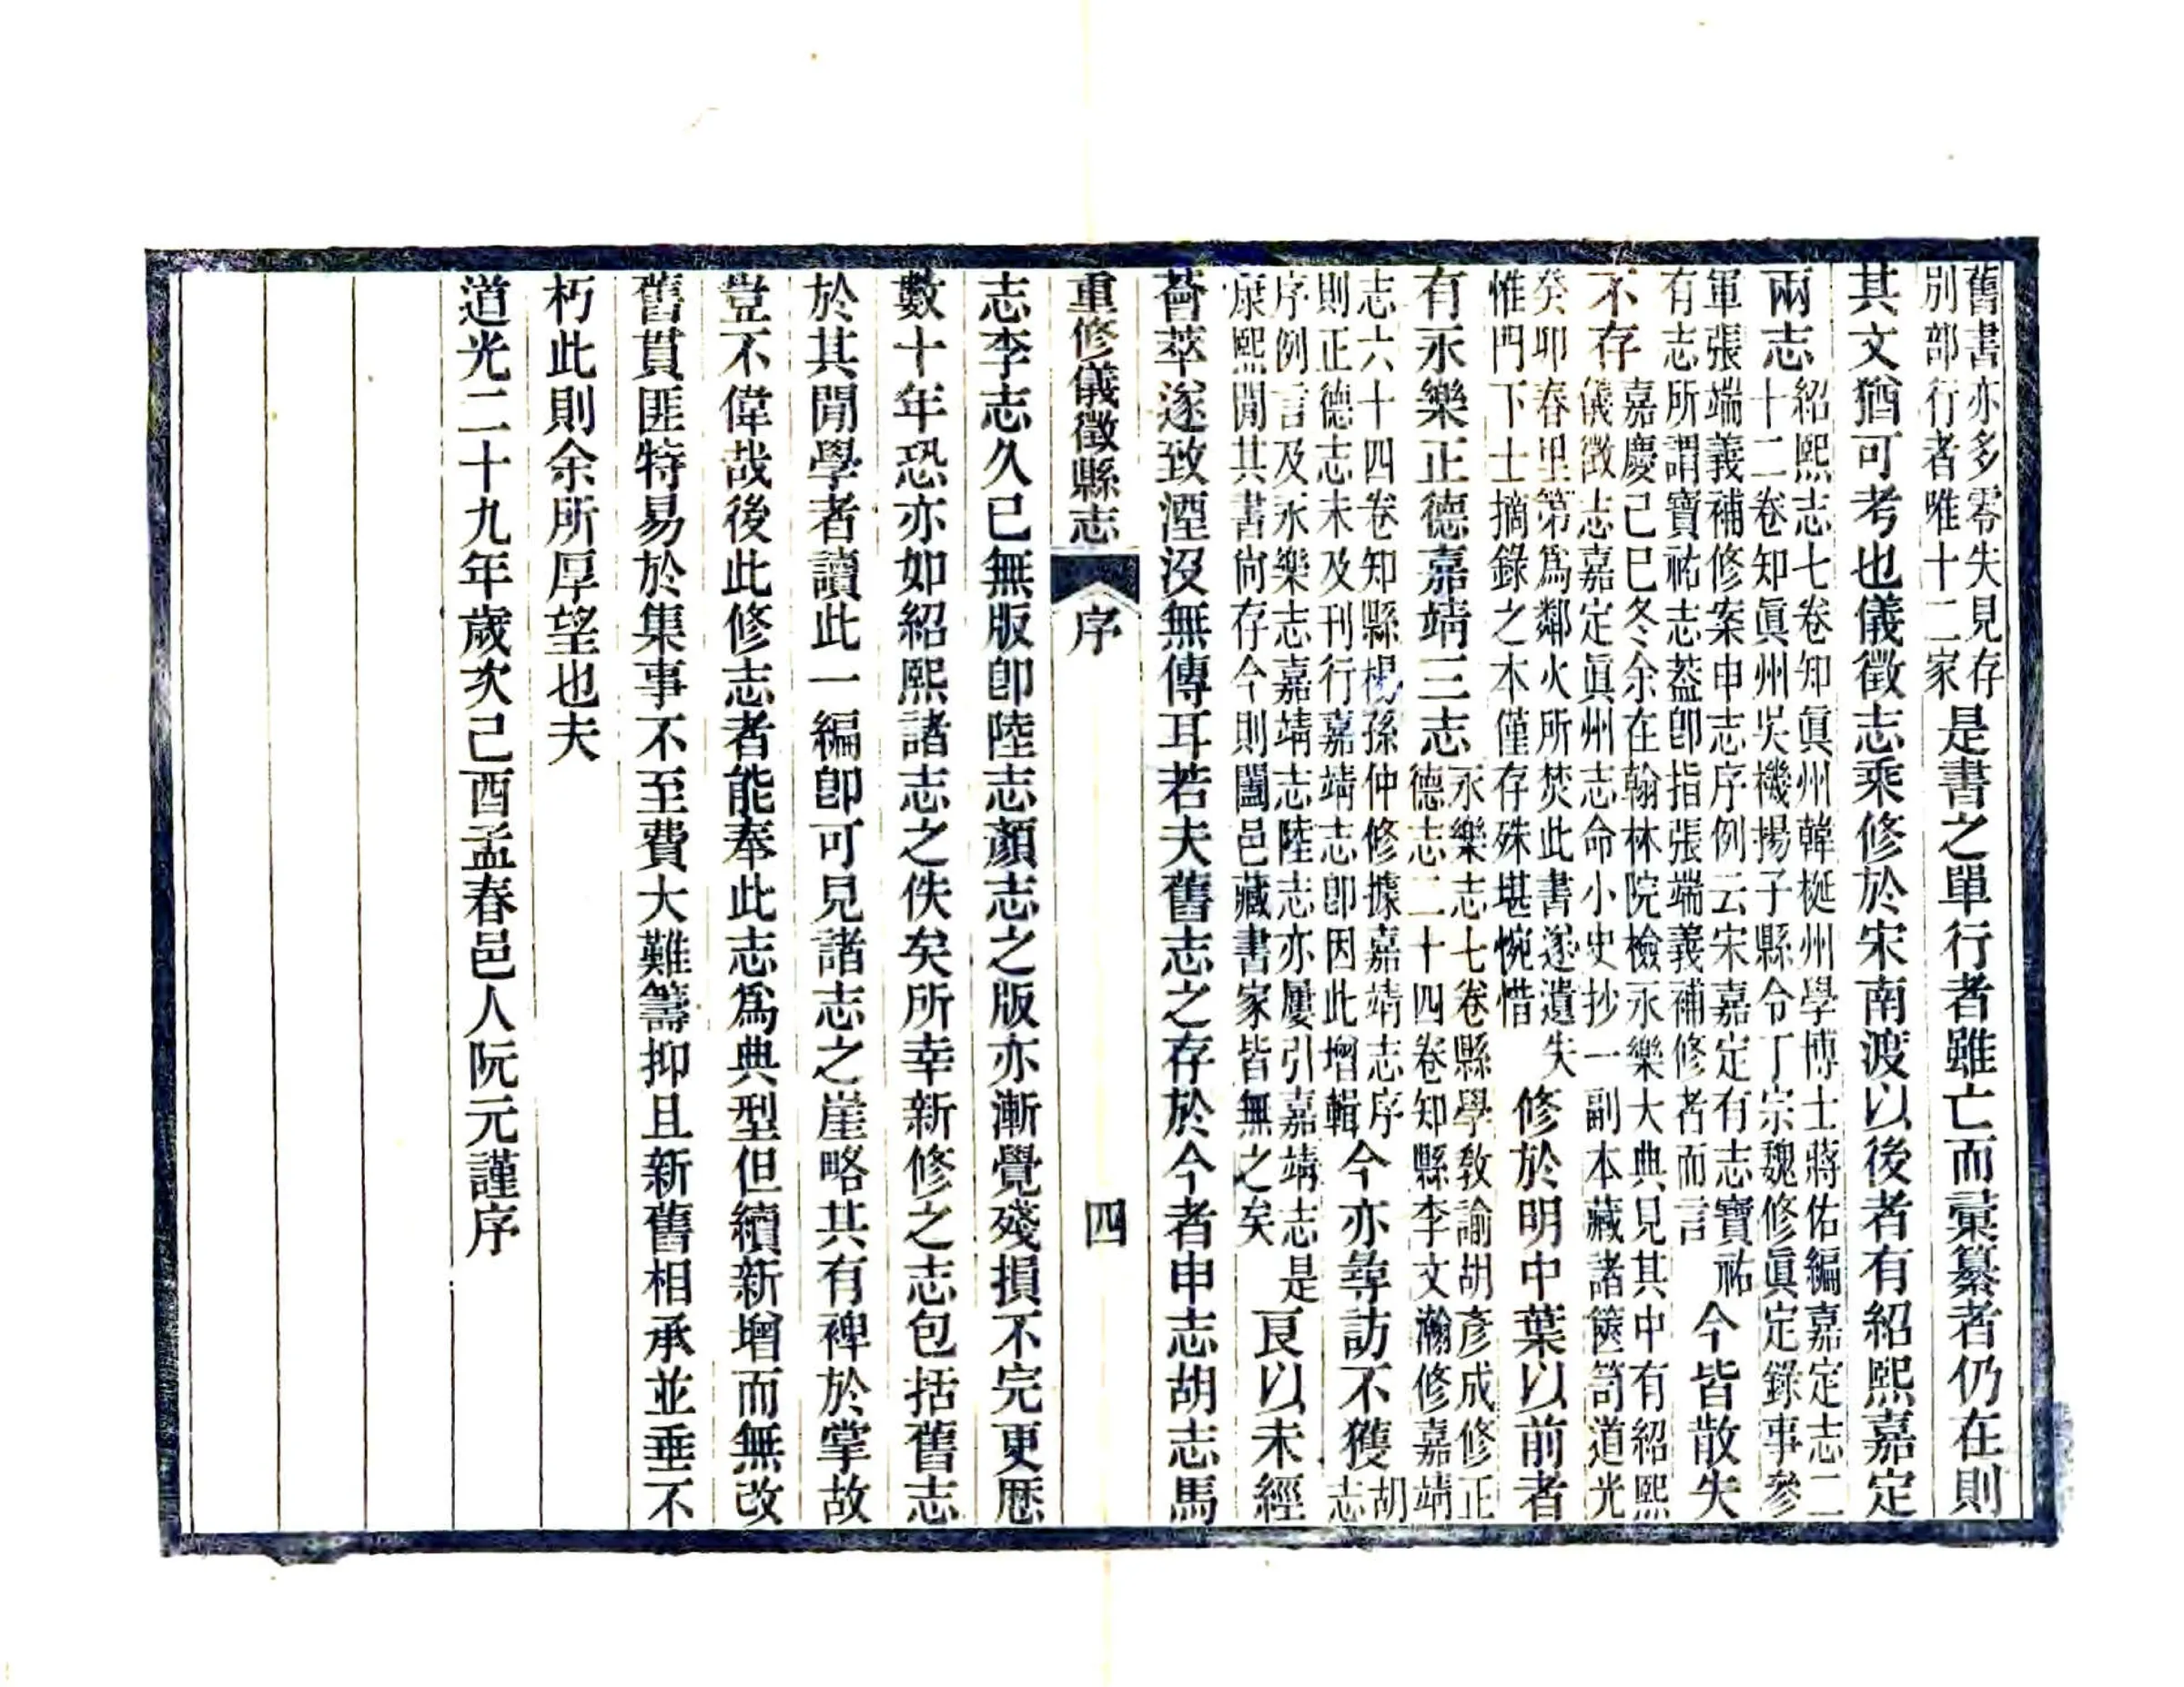 舊書亦多零失見存別部行者唯十二家是書之單行者雖亡而彙纂者仍在則
其文猶可考也儀徵志乘修於宋南渡以後者有紹熙嘉定
兩志紹熙志七卷知眞州韓梴州學博士蔣佑編嘉定志二十二卷知眞州吳機揚子縣令丁宗魏修眞定錄事參
軍張端義補修案申志序例云宋嘉定有志寶祐有志所謂寶祐志葢卽指張端義補修者而言今皆散失
不存嘉慶己巳冬余在翰林院檢永樂大典見其中有紹熙儀徵志嘉定眞州志命小史抄一副本藏諸篋笥道光
癸卯春里第爲鄰火所焚此書遂遺失惟門下士摘錄之本僅存殊堪惋惜修於明中葉以前者
有永樂正德嘉靖三志永樂志七卷縣學敎諭胡彥成修正德志二十四卷知縣李文瀚修嘉靖
志六十四卷知縣楊孫仲修據嘉靖志序則正德志未及刊行嘉靖志卽因此增輯今亦尋訪不獲胡志
序例言及永樂志嘉靖志陸志亦屢引嘉靖志是康熙閒其書尙存今則闔邑藏書家皆無之矣良以未經
薈萃遂致湮沒無傳耳若夫舊志之存於今者申志胡志馬
重修儀徵縣志 序 四
志李志久已無版卽陸志顏志之版亦漸覺殘損不完更歷
數十年恐亦如紹熙諸志之佚矣所幸新修之志包括舊志
於其閒學者讀此一編卽可見諸志之崖略其有裨於掌故
豈不偉哉後此修志者能奉此志爲典型但續新增而無改
舊貫匪特易於集事不至費大難籌抑且新舊相承並垂不
朽此則余所厚望也夫
道光二十九年歲次己酉孟春邑人阮元謹序